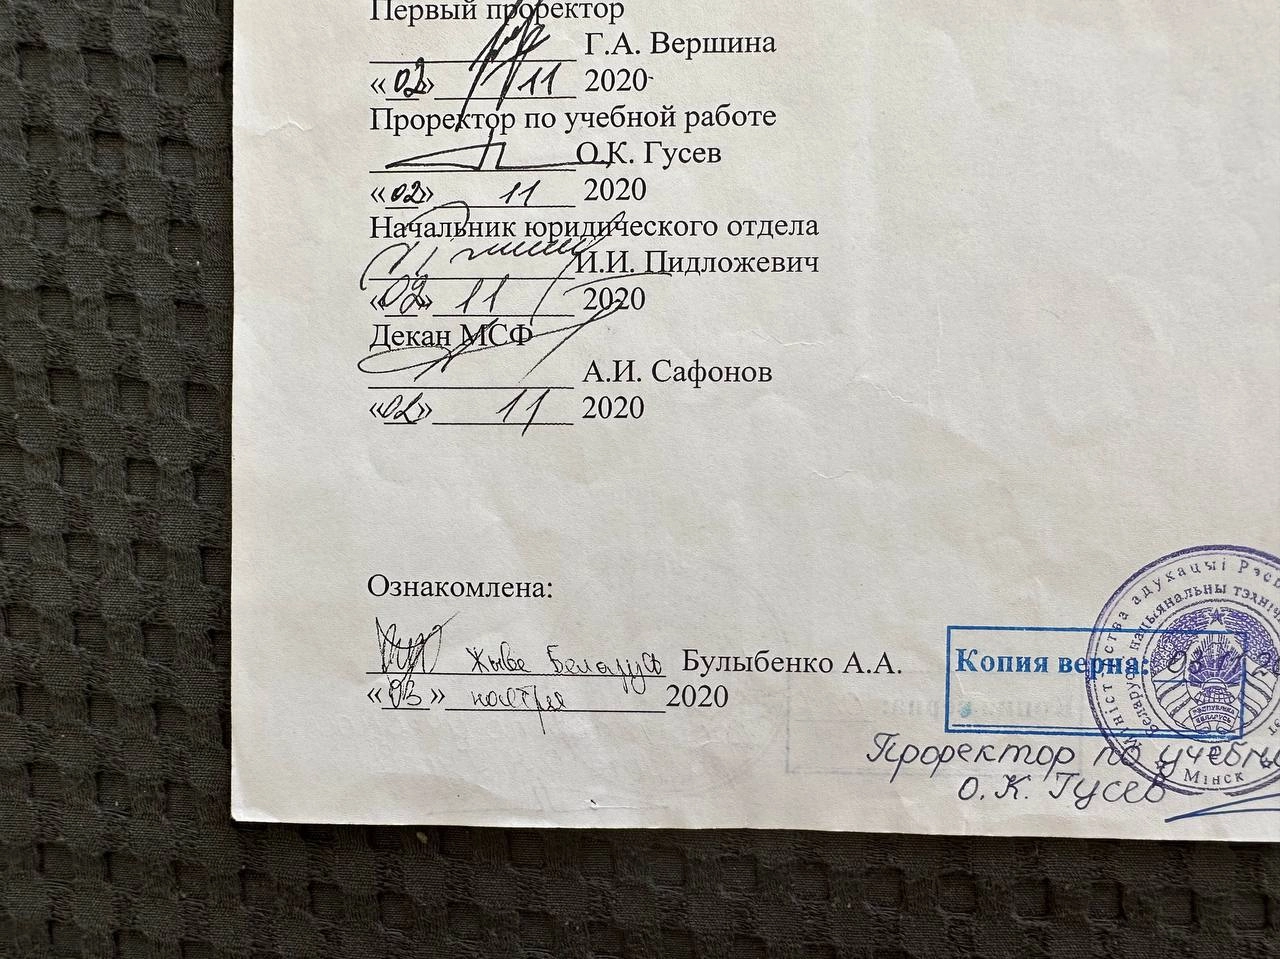 Первый проректор
Г.А. Вершина
«02» 11 2020
Проректор по учебной работе
О.К. Гусев
«02» 11 2020
Начальник юридического отдела
И.И. Пидложевич
«02» 11 2020
Декан МСФ
А.И. Сафонов
«02» 11 2020
Ознакомлена:
Жыве Беларусь Булыбенко А.А.
«03» 2020
Копия верна:
Проректор по учебн
О.К. Гусев
Міністэрства адукацыі Рэсп
Беларускі нацыянальны тэхніч
РЭСПУБЛІКА
БЕЛАРУСЬ
Мінск